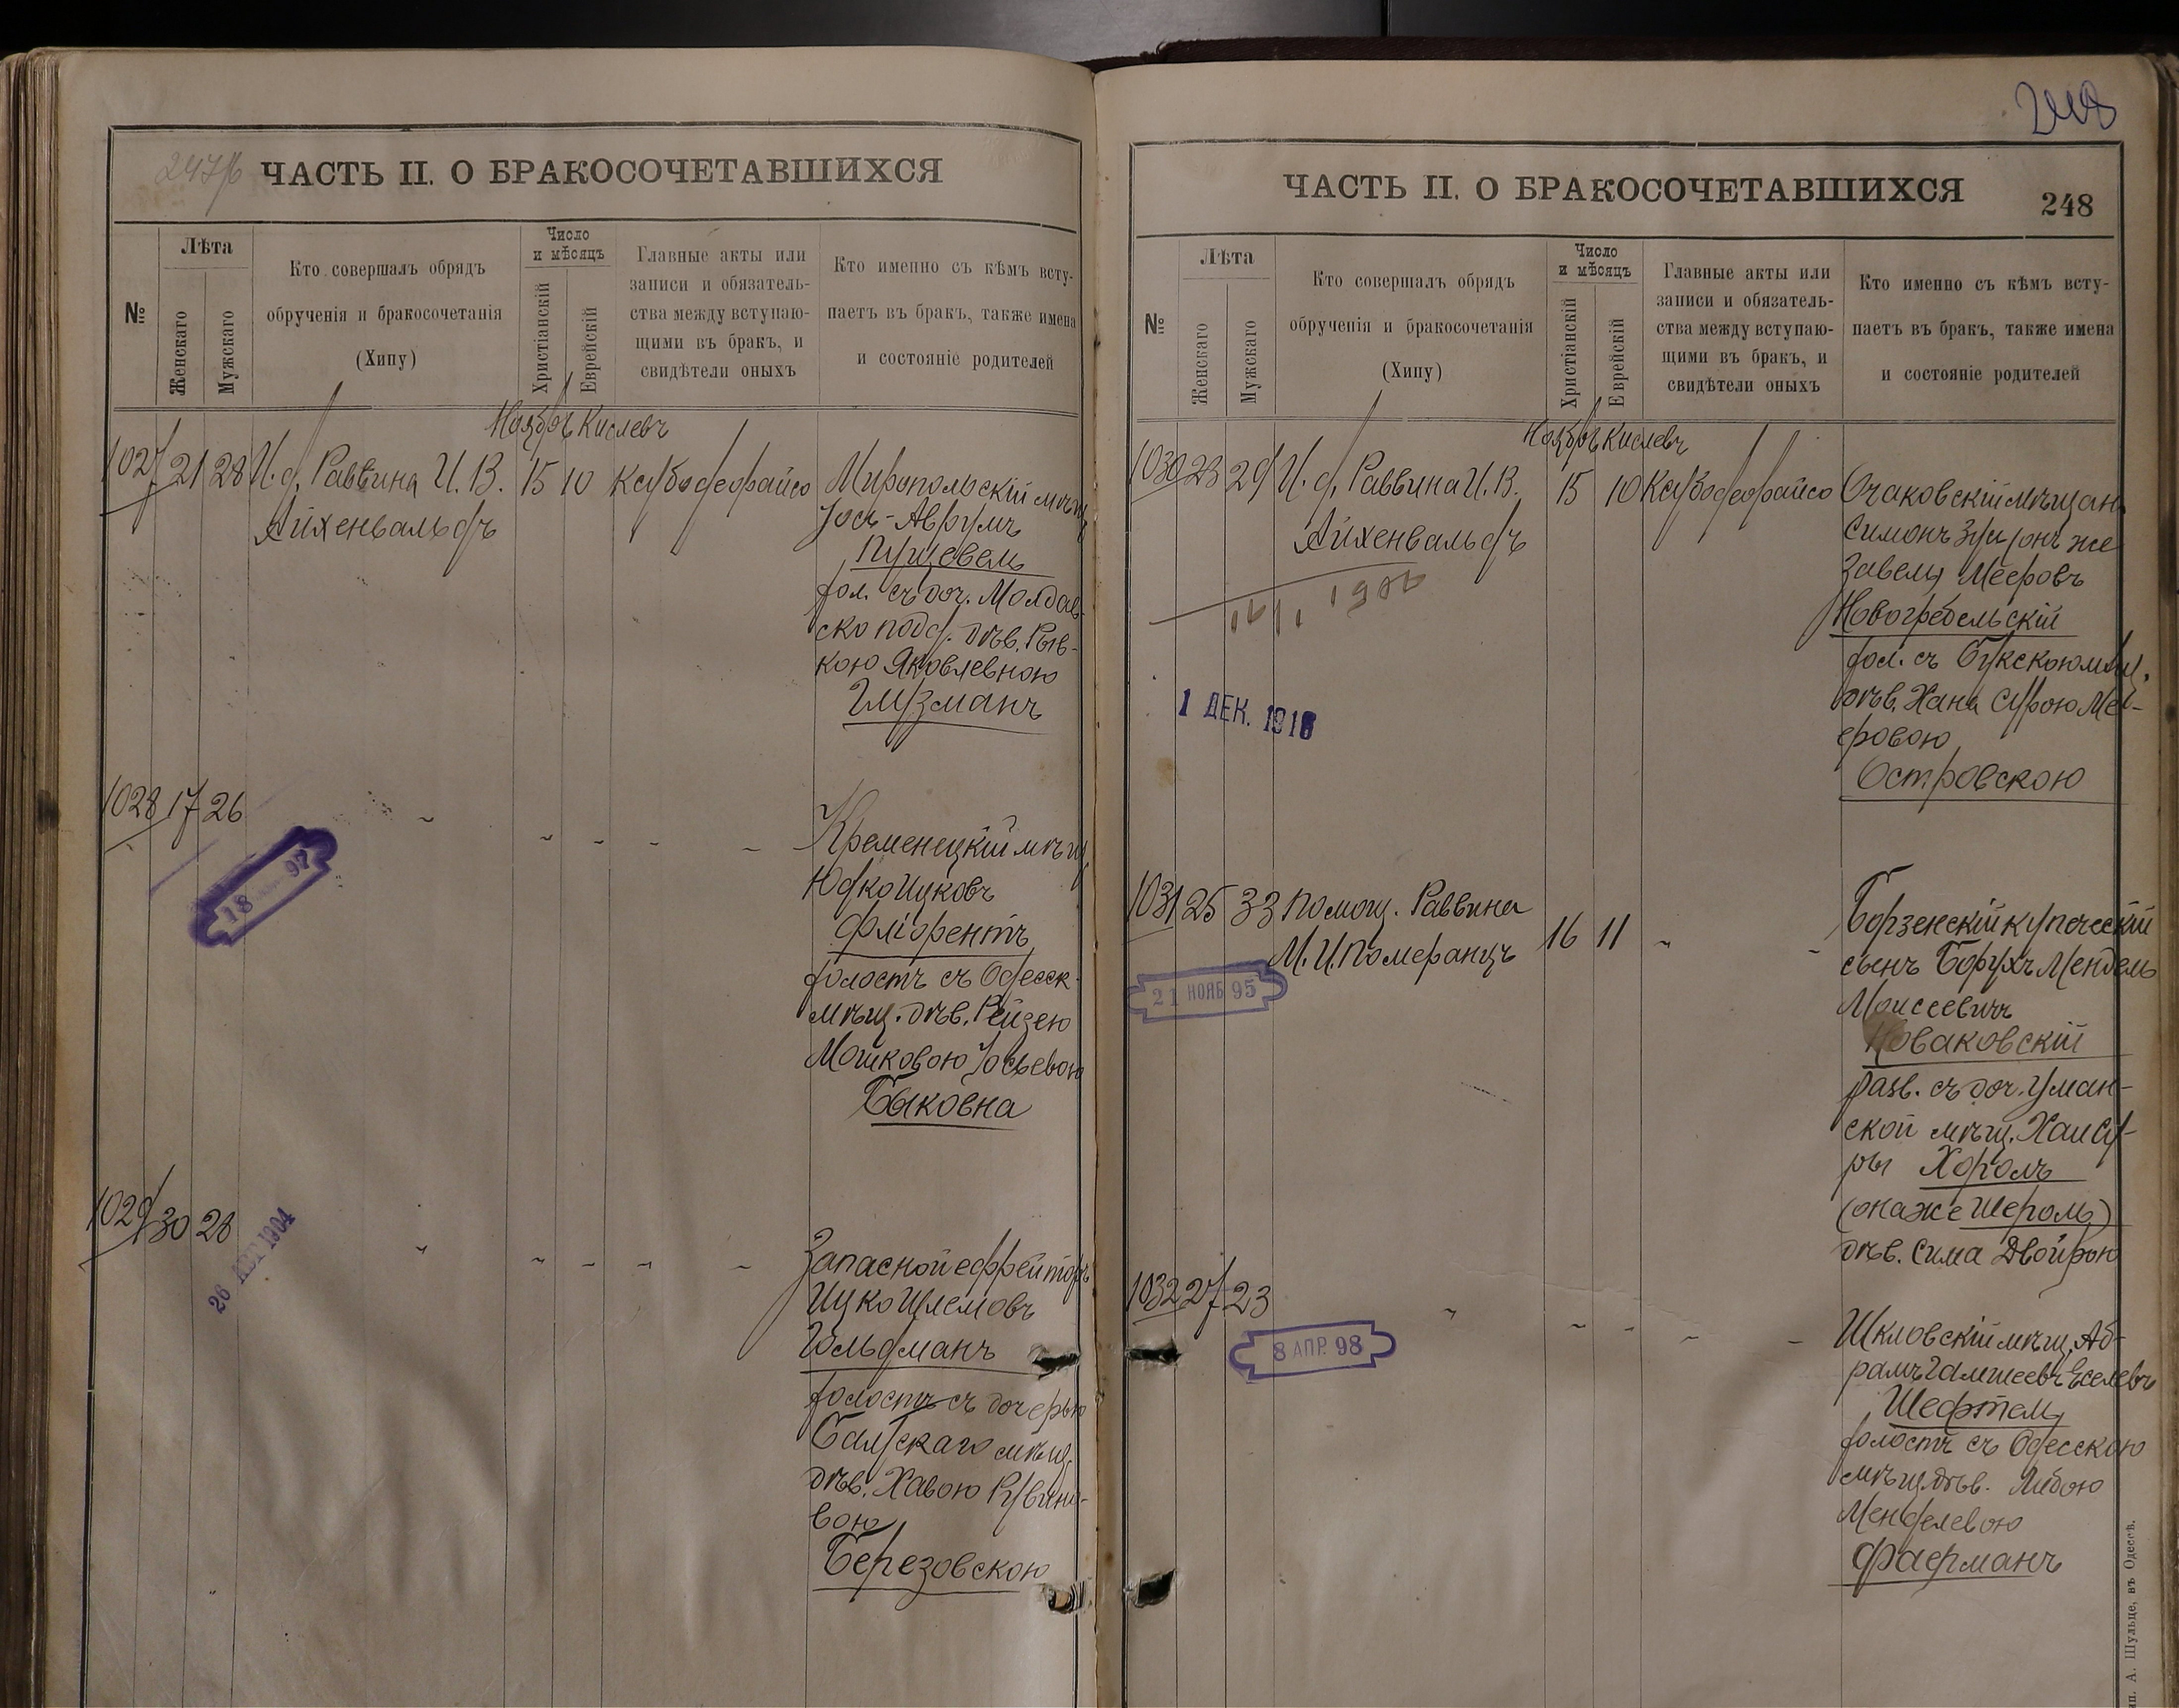 248
247/б ЧАСТЬ II. О БРАКОСОЧЕТАВШИХСЯ
№
Лѣта
Женскаго
Мужскаго
Кто совершалъ обрядъ
обрученія и бракосочетанія
(Хипу)
Число
и мѣсяцъ
Христіанскій
Еврейскій
Главные акты или
записи и обязатель-
ства между вступаю-
щими въ бракъ, и
свидѣтели оныхъ
Кто именно съ кѣмъ всту-
паетъ въ бракъ, также имена
и состояніе родителей
Ноябрь Кислевъ
1027 21 28 И. д. Раввина И. В. 15 10
Айхенвальдъ
Миропольскій мѣщ.
Іось-Аврумъ
хол. съ доч. Молдав-
ско подд. дѣв. Рыв-
кою Яковлевною
Глузманъ
1028 17 26
18 97
Кременецкій мѣщ.
Юдко Ицковъ
Фліорентъ
холостъ съ Одесск.
мѣщ. дѣв. Рейзею
Мошковою Іосьевою
Быковна
1029 30 28
26 1904
Запасной ефрейторъ
Ицко Шлемовъ
Гольдманъ
холостъ съ дочерью
Балтскаго мѣщ.
дѣв. Хавою Рувино-
вою
Березовскою
ЧАСТЬ II. О БРАКОСОЧЕТАВШИХСЯ 248
№
Лѣта
Женскаго
Мужскаго
Кто совершалъ обрядъ
обрученія и бракосочетанія
(Хипу)
Число
и мѣсяцъ
Христіанскій
Еврейскій
Главные акты или
записи и обязатель-
ства между вступаю-
щими въ бракъ, и
свидѣтели оныхъ
Кто именно съ кѣмъ всту-
паетъ въ бракъ, также имена
и состояніе родителей
Ноябрь Кислевъ
1030 23 29 И. д. Раввина И. В. 15 10
Айхенвальдъ
1 ДЕК. 1916
Очаковскій мѣщан.
Симонъ Зус онъ же
Завель Мееровъ
Новогребельскій
хол. съ Букскою мѣщ.
дѣв. Хана Сурою Ме-
еровою
Островскою
1031 25 33 Помощ. Раввина
М. И. Померанцъ 16 11
21 НОЯБ 95
Борзенскій купеческій
сынъ Борухъ Мендель
Моисеевичъ
Новаковскій
разв. съ доч. Уман-
ской мѣщ. Хаи Су-
ры Хороль
(она же Шероль)
дѣв. Сима Двойрою
1032 27 23
8 АПР. 98
Шкловскій мѣщ. Аб-
рамъ Еселевъ
Шефтель
холостъ съ Одесскою
мѣщ. дѣв. Либою
Менделевою
Фаерманъ
А. Шульце, въ Одессѣ.